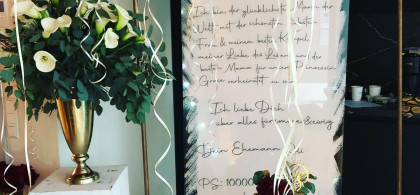 Ich bin der glücklichste Mann der
Welt mit der schönsten, besten
Frau & meinem besten Kumpel,
meiner Liebe des Lebens und der
besten Mama für unsere Prinzessin
verheiratet zu sein
Ich liebe Dich
über alles für immer & ewig
Dein Ehemann
PS: 10000